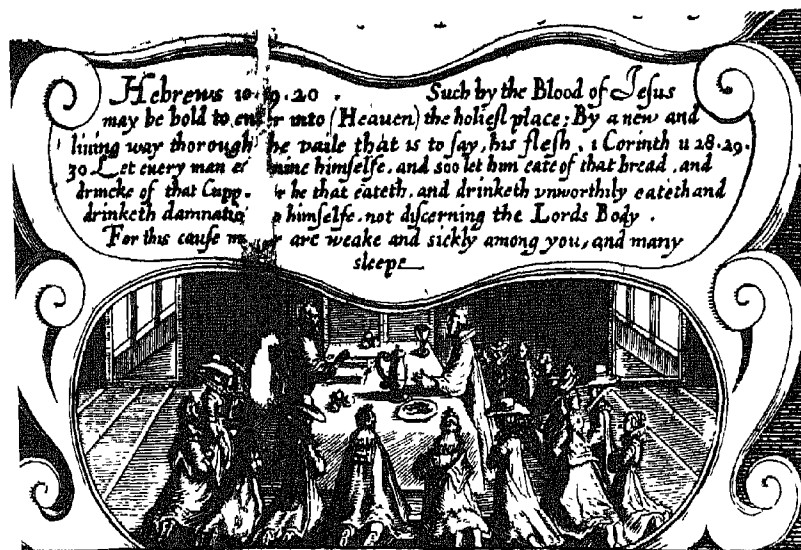 Hebrews 10 . 9 . 20 . Such by the Blood of Jesus
may be bold to enter into (Heauen) the holiest place; By a new and
liuing way thorough he vaile that is to say, his flesh . 1 Corinth 11 28 . 29 .
30 Let euery man mine himselfe, and soo let him eate of that bread , and
drincke of that Cupp . he that eateth, and drinketh vnworthily eateth and
drinketh damnatio himselfe, not discerning the Lords Body .
For this cause are weake and sickly among you, and many
sleepe